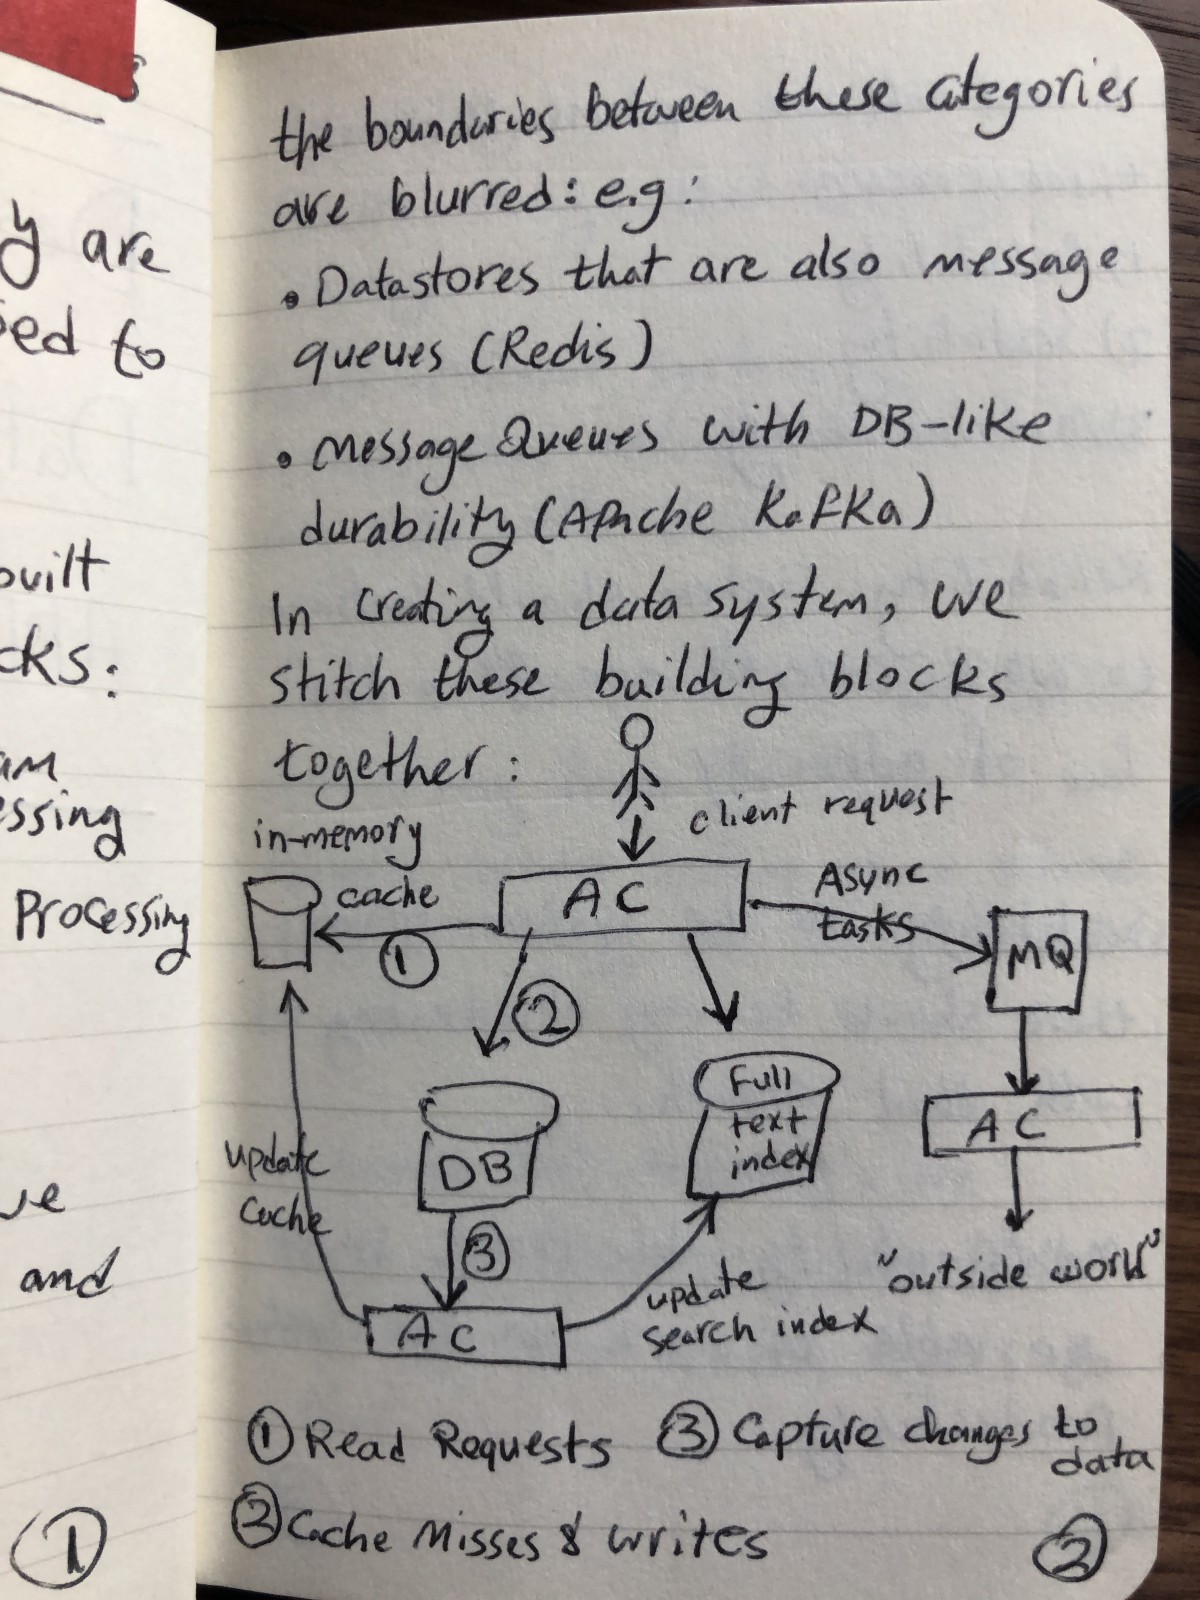 y are
ed to
built
cks:
am
essing
Processing
ve
and
1
the boundaries between these categories
are blurred: e.g:
• Datastores that are also message
queues (Redis)
• Message Queues with DB-like
durability (Apache Kafka)
In creating a data system, we
stitch these building blocks
together:
client request
in-memory
cache
AC
Async
tasks
1
MQ
2
Full
text
index
AC
DB
update
cache
3
"outside world"
update
search index
AC
① Read Requests ③ Capture changes to
data
② Cache Misses & writes
2